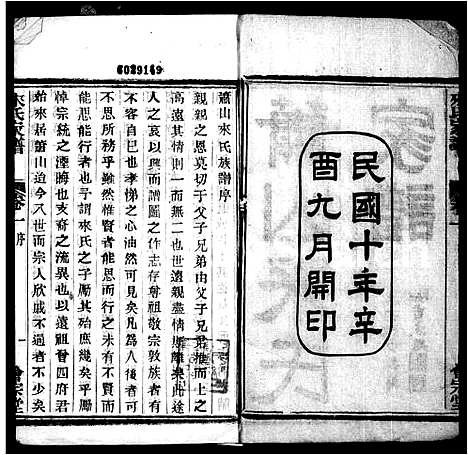 民國十年辛
酉九月開印
6029149
蕭山來氏族譜序
親親之恩莫切于父子兄弟由父子兄弟推而上之
高遠其情則一而無二也世遠親盡情隨離乘此途
人之哀以興而譜圖之作以存尊祖敬宗敦族者有
不容自已也孝悌之心油然可見矣凡為人後者可
不思所務乎雖然惟賢知恩而行之未有不賢知而
能思能行者也予謂來氏之子屬其始庶幾矣乎屬
悼宗統之湮將也支裔之流異也以遠祖晉四府君
始來居蕭山迨今八世而宗人欣戚不過者不少矣
來氏家譜
卷一 序
一
會宗堂